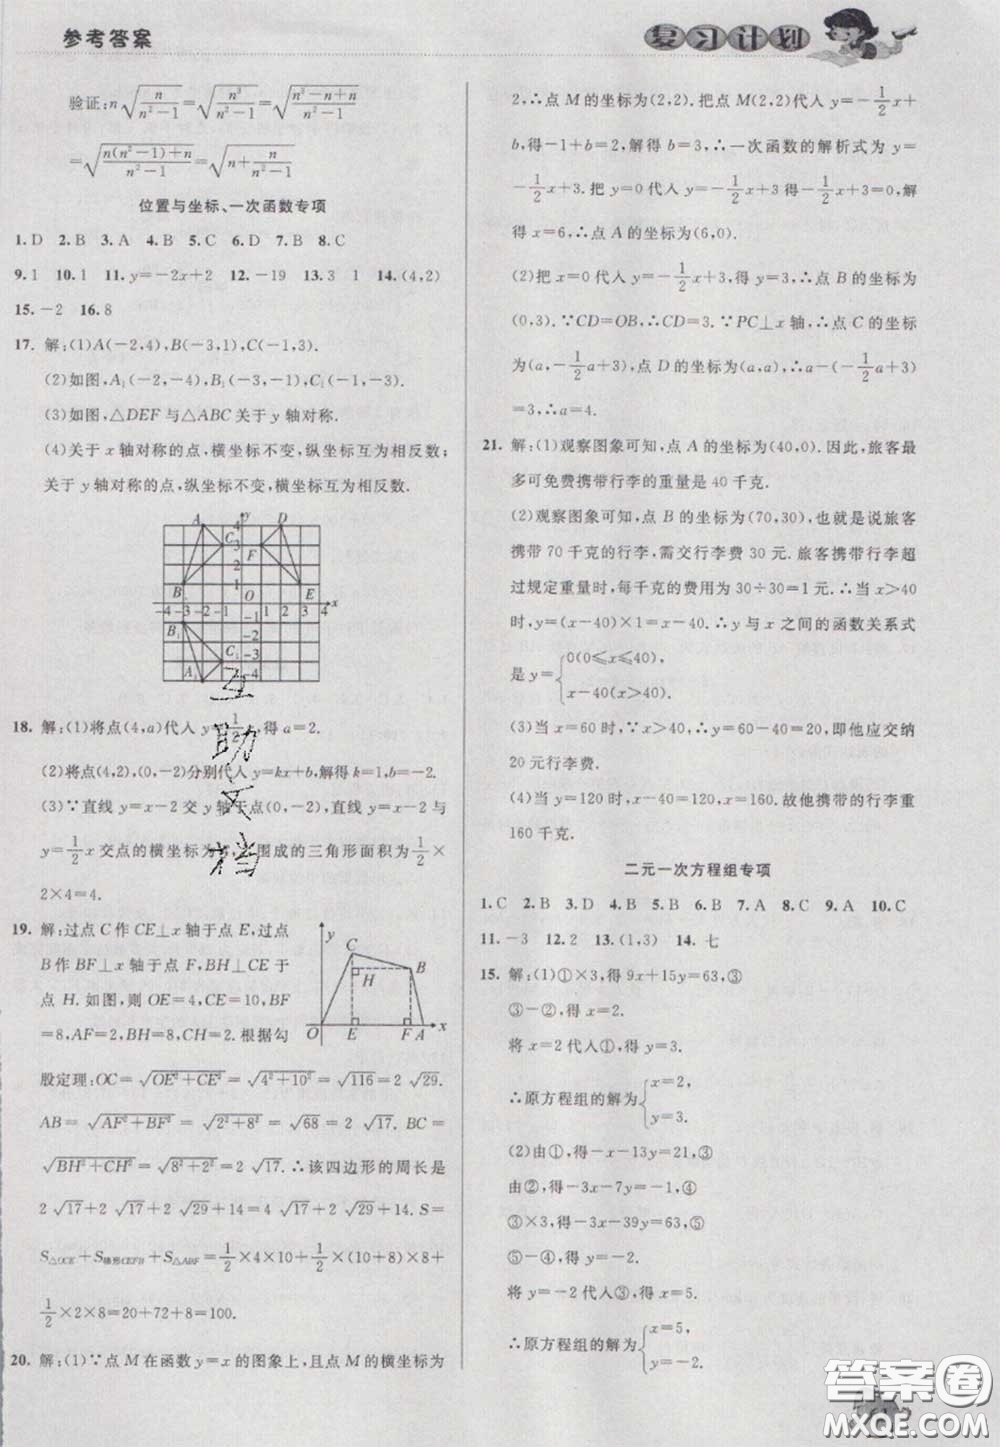 参考答案
复习计划
验证:n√(n/(n²-1))=√(n³/(n²-1))=√((n³-n+n)/(n²-1))
=√((n(n²-1)+n)/(n²-1))=√(n+n/(n²-1))
位置与坐标、一次函数专项
1.D 2.B 3.A 4.B 5.C 6.D 7.B 8.C
9.1 10.1 11.y=-2x+2 12.-19 13.3 1 14.(4,2)
15.-2 16.8
17. 解:(1)A(-2,4),B(-3,1),C(-1,3).
(2)如图,A₁(-2,-4),B₁(-3,-1),C₁(-1,-3).
(3)如图,△DEF与△ABC关于y轴对称.
(4)关于x轴对称的点,横坐标不变,纵坐标互为相反数;
关于y轴对称的点,纵坐标不变,横坐标互为相反数.
A 4 y D
C 3 F
2
B 1 O E
-4 -3 -2 -1 1 2 3 4 x
-1
B₁ -2
C₁ -3
A₁ -4
18. 解:(1)将点(4,a)代入y=1/2x,得a=2.
(2)将点(4,2),(0,-2)分别代入y=kx+b,解得k=1,b=-2.
(3)∵直线y=x-2交y轴于点(0,-2),直线y=x-2与
y=1/2x交点的横坐标为4,∴围成的三角形面积为1/2×
2×4=4.
19. 解:过点C作CE⊥x轴于点E,过点
B作BF⊥x轴于点F,BH⊥CE于
点H.如图,则OE=4,CE=10,BF
=8,AF=2,BH=8,CH=2.根据勾
y C B H O E F A x
股定理:OC=√(OE²+CE²)=√(4²+10²)=√116=2√29.
AB=√(AF²+BF²)=√(2²+8²)=√68=2√17.BC=
√(BH²+CH²)=√(8²+2²)=2√17.∴该四边形的周长是
2√17+2√17+2√29+14=4√17+2√29+14.S=
S△OCE+S梯形CEFB+S△ABF=1/2×4×10+1/2×(10+8)×8+
1/2×2×8=20+72+8=100.
20. 解:(1)∵点M在函数y=x的图象上,且点M的横坐标为
2,∴点M的坐标为(2,2).把点M(2,2)代入y=-1/2x+
b,得-1+b=2,解得b=3,∴一次函数的解析式为y=
-1/2x+3.把y=0代入y=-1/2x+3得-1/2x+3=0,解
得x=6,∴点A的坐标为(6,0).
(2)把x=0代入y=-1/2x+3,得y=3,∴点B的坐标为
(0,3).∵CD=OB,∴CD=3.∵PC⊥x轴,∴点C的坐标
为(a,-1/2a+3),点D的坐标为(a,a),∴a-(-1/2a+3)
=3,∴a=4.
21. 解:(1)观察图象可知,点A的坐标为(40,0).因此,旅客最
多可免费携带行李的重量是40千克.
(2)观察图象可知,点B的坐标为(70,30),也就是说旅客
携带70千克的行李,需交行李费30元.旅客携带行李超
过规定重量时,每千克的费用为30÷30=1元.∴当x>40
时,y=(x-40)×1=x-40.∴y与x之间的函数关系式
是y={0(0≤x≤40),
x-40(x>40).
(3)当x=60时,∵60>40,∴y=60-40=20,即他应交纳
20元行李费.
(4)当y=120时,x-40=120,x=160.故他携带的行李重
160千克.
二元一次方程组专项
1.C 2.B 3.D 4.B 5.B 6.B 7.A 8.C 9.A 10.C
11.-3 12.2 13.(1,3) 14.七
15. 解:(1)①×3,得9x+15y=63,③
③-②,得x=2.
将x=2代入①,得y=3.
∴原方程组的解为{x=2,
y=3.
(2)由①,得-x-13y=21,③
由②,得-3x-7y=-1,④
③×3,得-3x-39y=63,⑤
⑤-④,得y=-2.
将y=-2代入③,得x=5.
∴原方程组的解为{x=5,
y=-2.
互助文档
答案圈
MXQE.COM